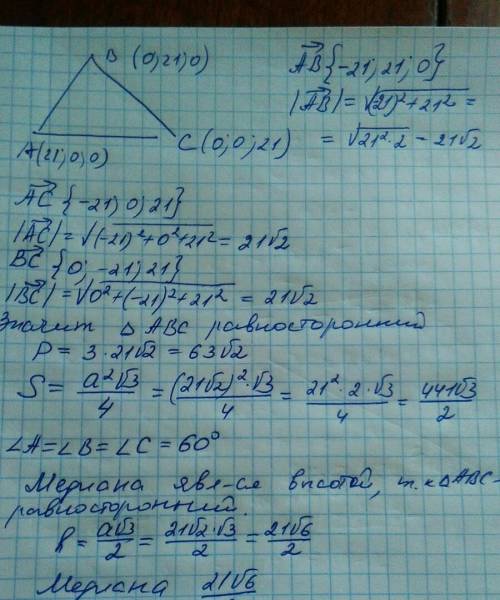 B (0;21;0)
A(21;0;0)
C(0;0;21)
AB{-21;21;0}
|AB|=√(21)²+21² =
= √21²·2 - 21√2
AC{-21;0;21}
|AC|=√(-21)²+0²+21² = 21√2
BC{0;-21;21}
|BC|=√0²+(-21)²+21² = 21√2
Значит △ABC равносторонний
P = 3·21√2 = 63√2
S = a²√3/4 = (21√2)²·√3/4 = 21²·2·√3/4 = 441√3/2
∠A=∠B=∠C=60°
Медиана явл-ся высотой, т.к △ABC-
равносторонний.
h = a√3/2 = 21√2·√3/2 = 21√6/2
Медиана 21√6